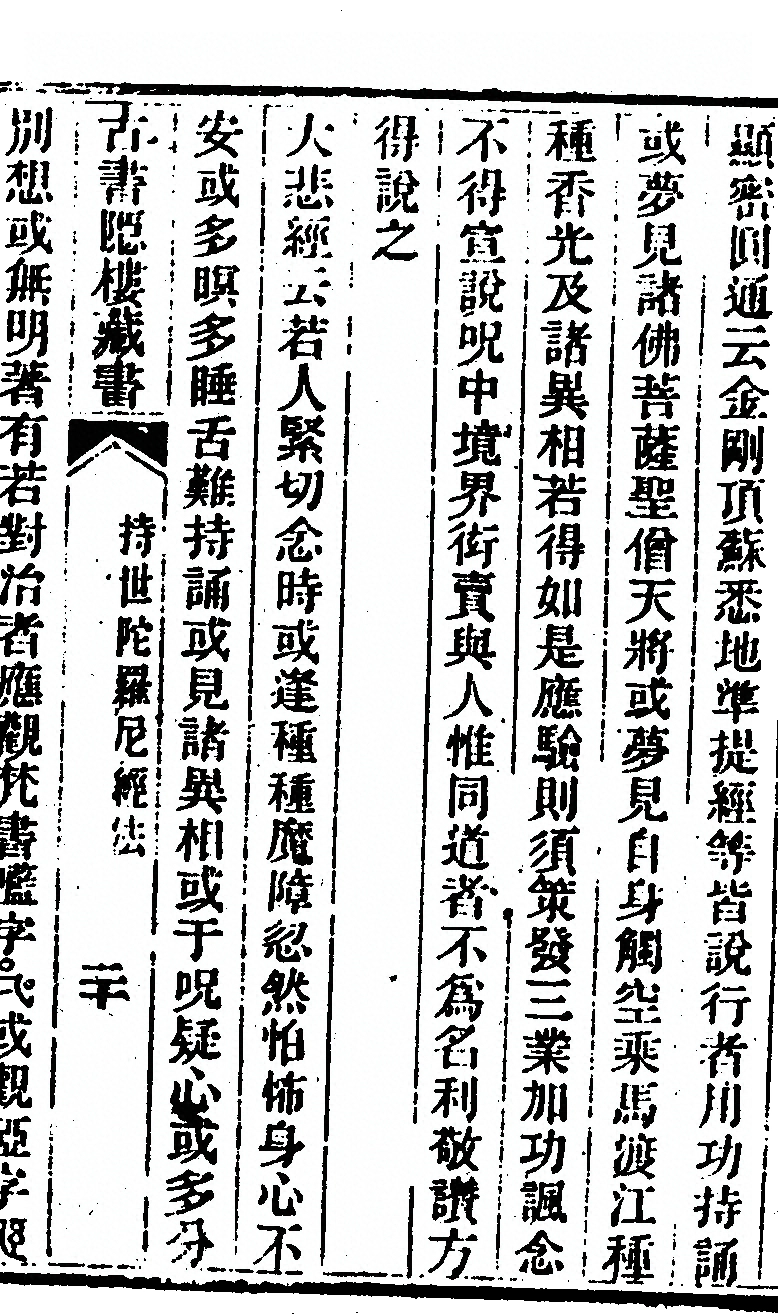 顯密圓通云金剛頂蘇悉地準提經等皆說行者用功持誦
或夢見諸佛菩薩聖僧天將或夢見自身觸空乘馬渡江種
種香光及諸異相若得如是應驗則須策發三業加功諷念
不得宣說呪中境界衒賣與人惟同道者不為名利敬讚方
得說之
大悲經云若人緊切念時或逢種種魔障忽然怕怖身心不
安或多瞋多睡舌難持誦或見諸異相或于呪疑心或多分
古書隱樓藏書
持世陀羅尼經法
二十
別想或無明著有若對治者應觀梵書囕字或觀䛩字